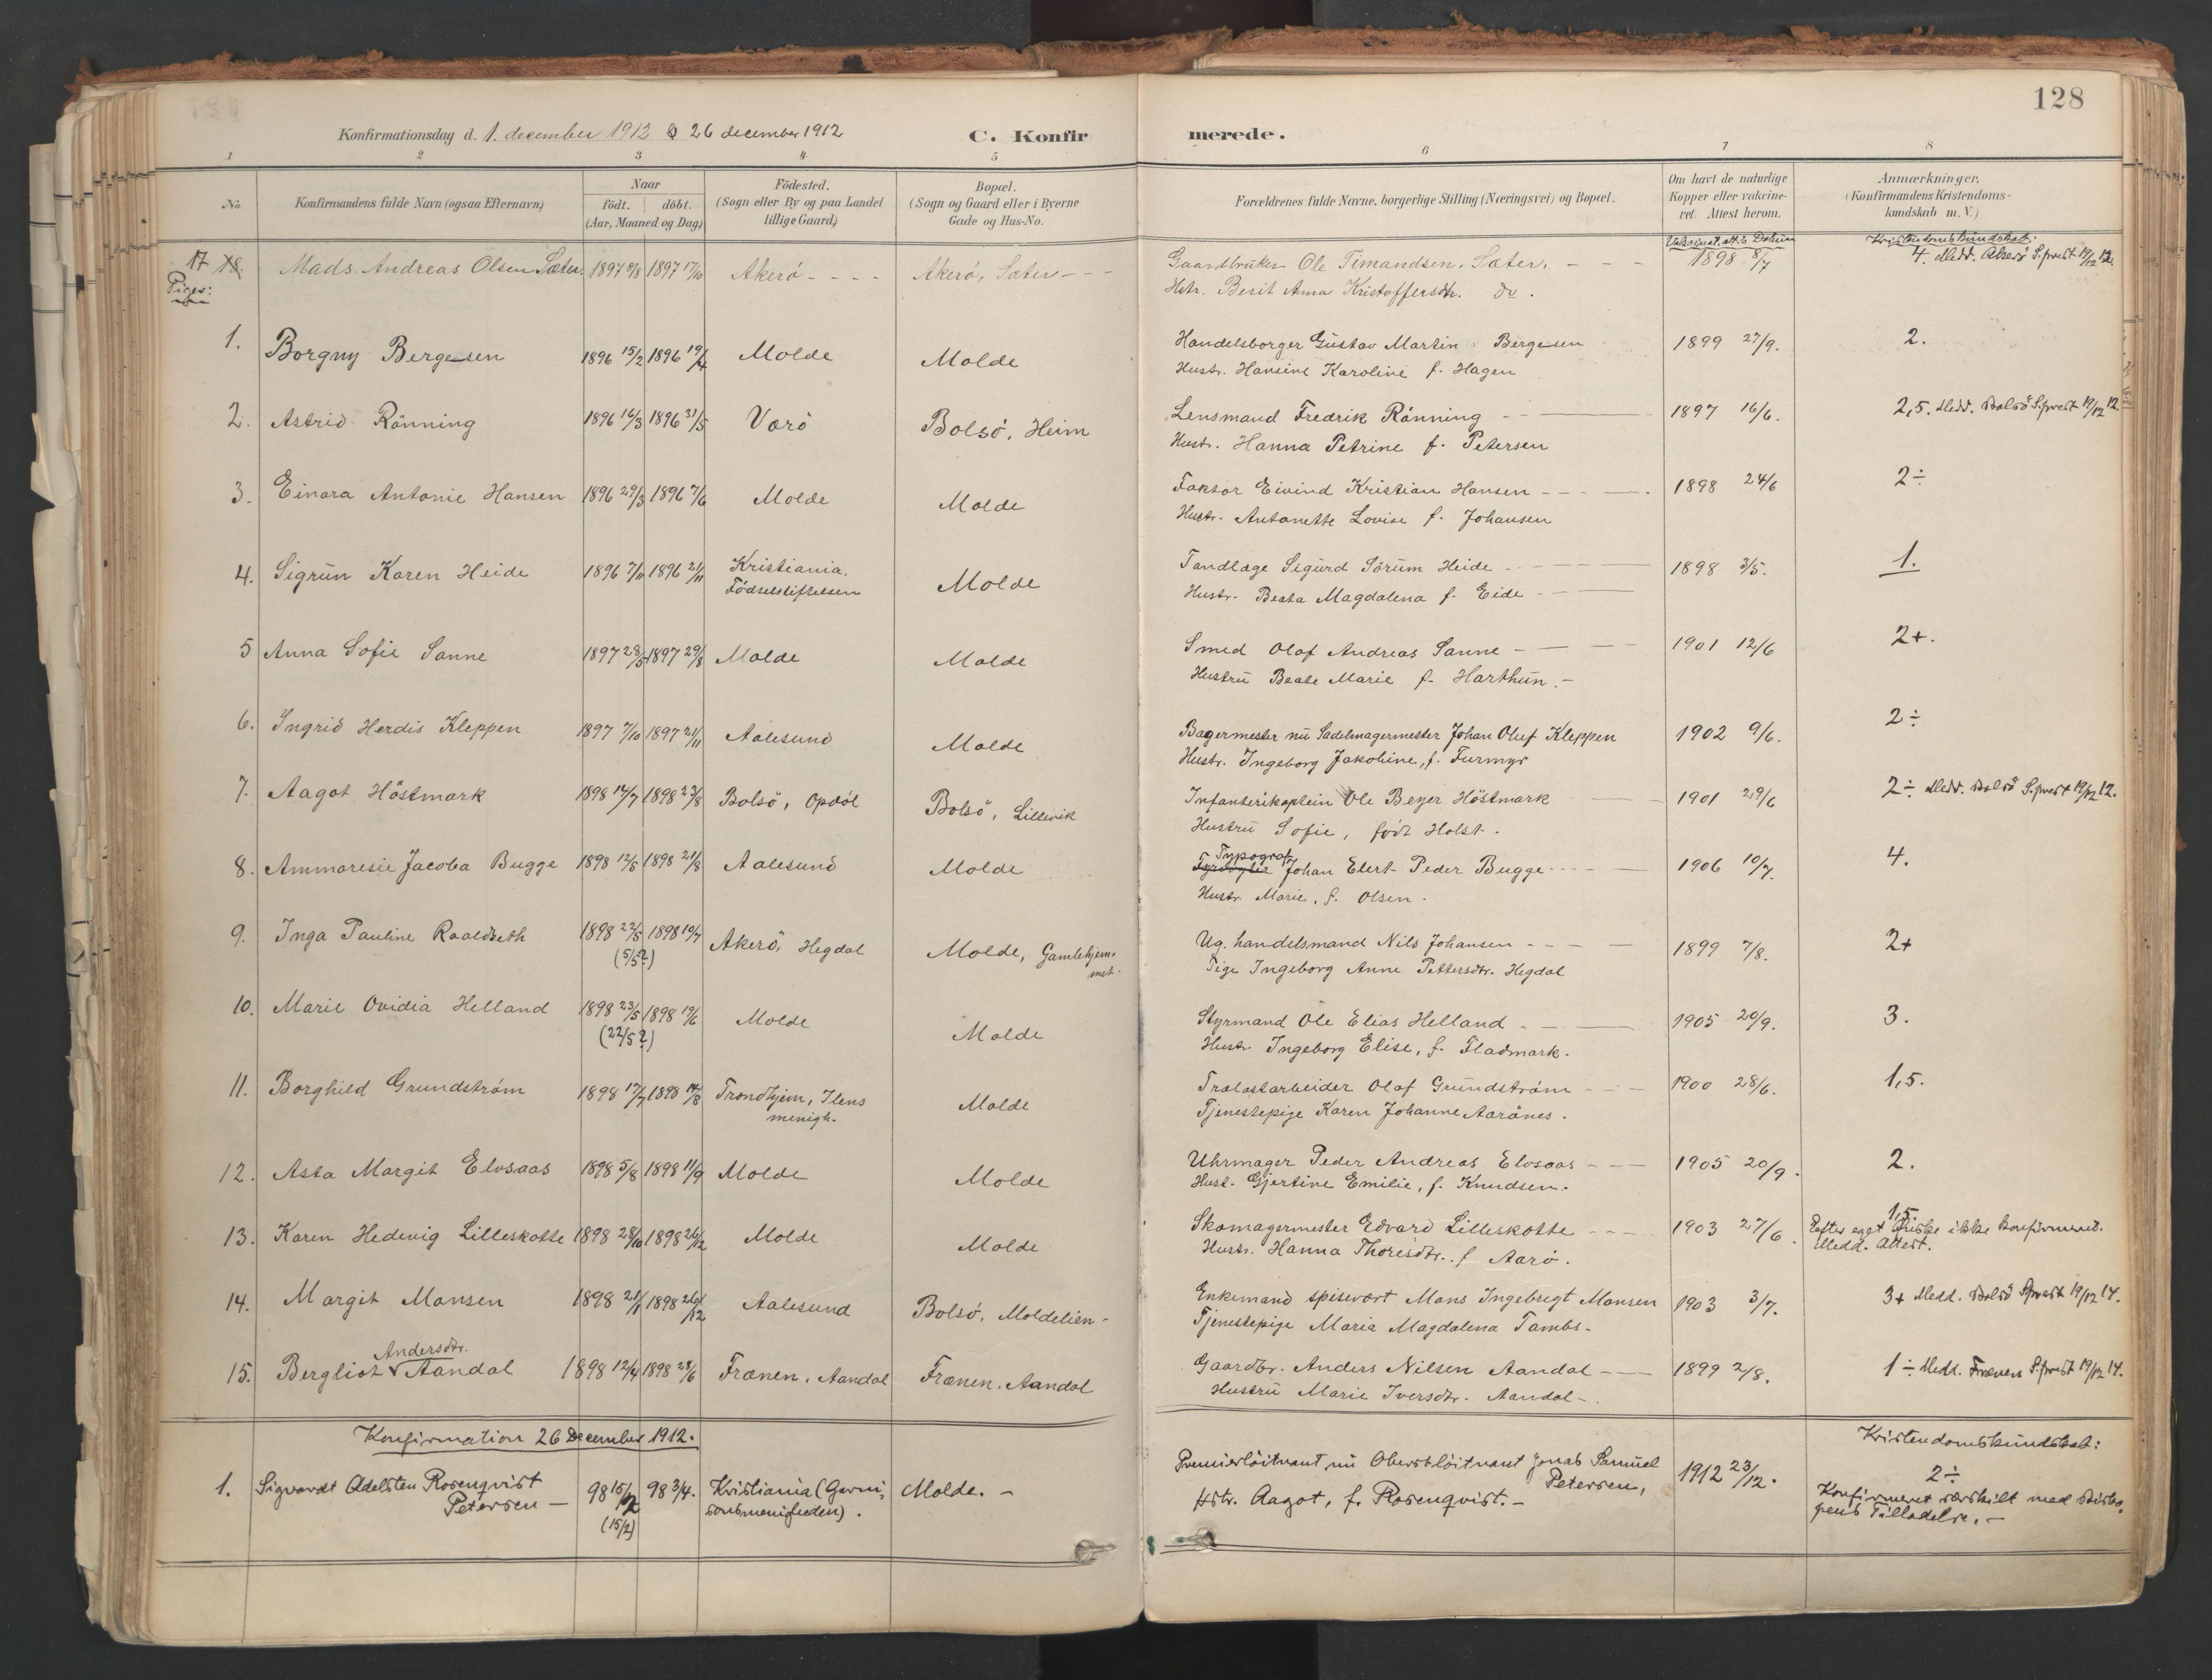 128
Konfirmationsdag d. 1. december 1912 & 26 december 1912 C. Konfirmerede.
1 2 3 4 5 6 7 8
No. Konfirmandens fulde Navn (ogsaa Efternavn) Naar født. døbt. (Aar, Maaned og Dag) Födested. (Sogn eller By og paa Landet tillige Gaard) Bopæl. (Sogn og Gaard eller i Byerne Gade og Hus-No. Forældrenes fulde Navne, borgerlige Stilling (Næringsvei) og Bopæl. Om havt de naturlige Kopper eller vakcineret. Attest herom. Anmærkninger. (Konfirmandens Kristendomskundskab m. V.)
Kristendomskundskab:
17 18. Mads Andreas Olsen Sæter. 1897 8/8 1897 17/10 Akerö - - - Akerö, Sæter - - Gaardbruker Ole Timandsen, Sæter, - - - 1898 8/7 4. Medd. Akerö S.prest 19/12 12.
Hstr. Berit Anna Kristoffersdtr. Do.
Piger:
1. Borgny Bergesen 1896 15/2 1896 19/4 Molde Molde Handelsborger Gustav Martin Bergesen 1899 27/9. 2.
Hustr. Hansine Karoline f. Hagen
2. Astrid Rönning 1896 16/3 1896 31/5 Værö Bolsö, Heim Lensmand Fredrik Rönning - - 1897 16/6. 2,5. Medd. Bolsö S.prest 19/12 12.
Hustr. Hanna Petrine f. Petersen
3. Einara Antonie Hansen 1896 29/3 1896 7/6 Molde Molde Faktor Eivind Kristian Hansen - - - 1898 24/6 2÷
Hustr. Antonette Lovise f. Johansen
4. Sigrun Karen Heide 1896 7/11 1896 21/11 Kristiania. Födselstiftelsen Molde Tandlæge Sigurd Sörum Heide - - 1898 3/5. 1.
Hustr. Beata Magdalena f. Eide - -
5 Anna Sofie Sanne 1897 28/5 1897 29/8 Molde Molde Smed Olaf Andreas Sanne - - - 1901 12/6 2+.
Hustru Beate Marie f. Harthun. -
6. Ingrid Herdis Kleppen 1897 7/10 1897 21/11 Aalesund Molde Bagermester nu Sadelmagermester Johan Oluf Kleppen 1902 9/6. 2÷
Hustr. Ingeborg Jakobine, f. Furmyr
7. Aagot Höstmark 1898 14/7 1898 23/8 Bolsö, Opdöl Bolsö, Lillevik Infanterikaptein Ole Beyer Höstmark 1901 29/6 2÷ Medd. Bolsö S.prest 19/12 12.
Hustru Sofie, född Holst.
8. Ammaresie Jacoba Bugge 1898 12/5 1898 21/8 Aalesund Molde Typograf Johan Elert Peder Bugge - - - 1906 10/7. 4.
Hustr. Marie, f. Olsen.
9. Inga Pauline Raaldseth 1898 22/5 1898 10/7 Akerö, Hegdal Molde, Gamlehjemmet. Ug. handelsmand Nils Johansen - - - 1899 7/8. 2+
(5/5?) Pige Ingeborg Anne Pettersdtr. Hegdal
10. Marie Ovidia Helland 1898 23/5 1898 19/6 Molde Molde Styrmand Ole Elias Helland - - 1905 20/9. 3.
(22/5?) Hustr. Ingeborg Elise, f. Fladmark.
11. Borghild Grundström 1898 17/7 1898 14/8 Trondhjem, Ilens menigh. Molde Trælastarbeider Olaf Grundström - - - 1900 28/6. 1,5.
Tjenestepige Karen Johanne Aarönes.
12. Asta Margit Elvsaas 1898 5/8 1898 11/9 Molde Molde Uhrmager Peder Andreas Elvsaas - - - 1905 20/9. 2.
Hust. Gjertine Emilie, f. Knudsen.
13. Karen Hedevig Lilleskotte 1898 28/10 1898 26/12 Molde Molde Skomagermester Edvard Lilleskotte - - - 1903 27/6. 1,5. Efter eget Önske ikke konfirmeret.
Hustr. Hanna Thoresdtr. f. Aarö. Medd. Attest.
14. Margit Monsen 1898 21/1 1898 26/12 Aalesund Bolsö, Moldelien - Enkemand spisevært Mons Ingebrigt Monsen 1903 3/7. 3+ Medd. Bolsö S.prest 19/12 14.
Tjenestepige Maria Magdalena Tambs -
15. Bergliot Andersdtr. Aandal 1898 12/4 1898 28/6 Frænen, Aandal Frænen, Aandal Gaardbr. Anders Nilsen Aandal - - 1899 2/8. 1÷ Medd. Frænens S.prest 19/12 14.
Hustru Marie Iversdtr. Aandal -
Konfirmation 26 December 1912.
Kristendomskundskab:
1. Sigvardt Adelsten Rosenqvist Petersen - 98 15/2 98 3/4. Kristiania (Garnisonsmenigheden). Molde. - Premierlöitnant nu Oberstlöitnant Jonas Samuel Petersen, 1912 23/12. 2÷
(15/2) Hstr. Aagot, f. Rosenqvist. - Konfirmeret særskilt med biskopens Tilladelse. -